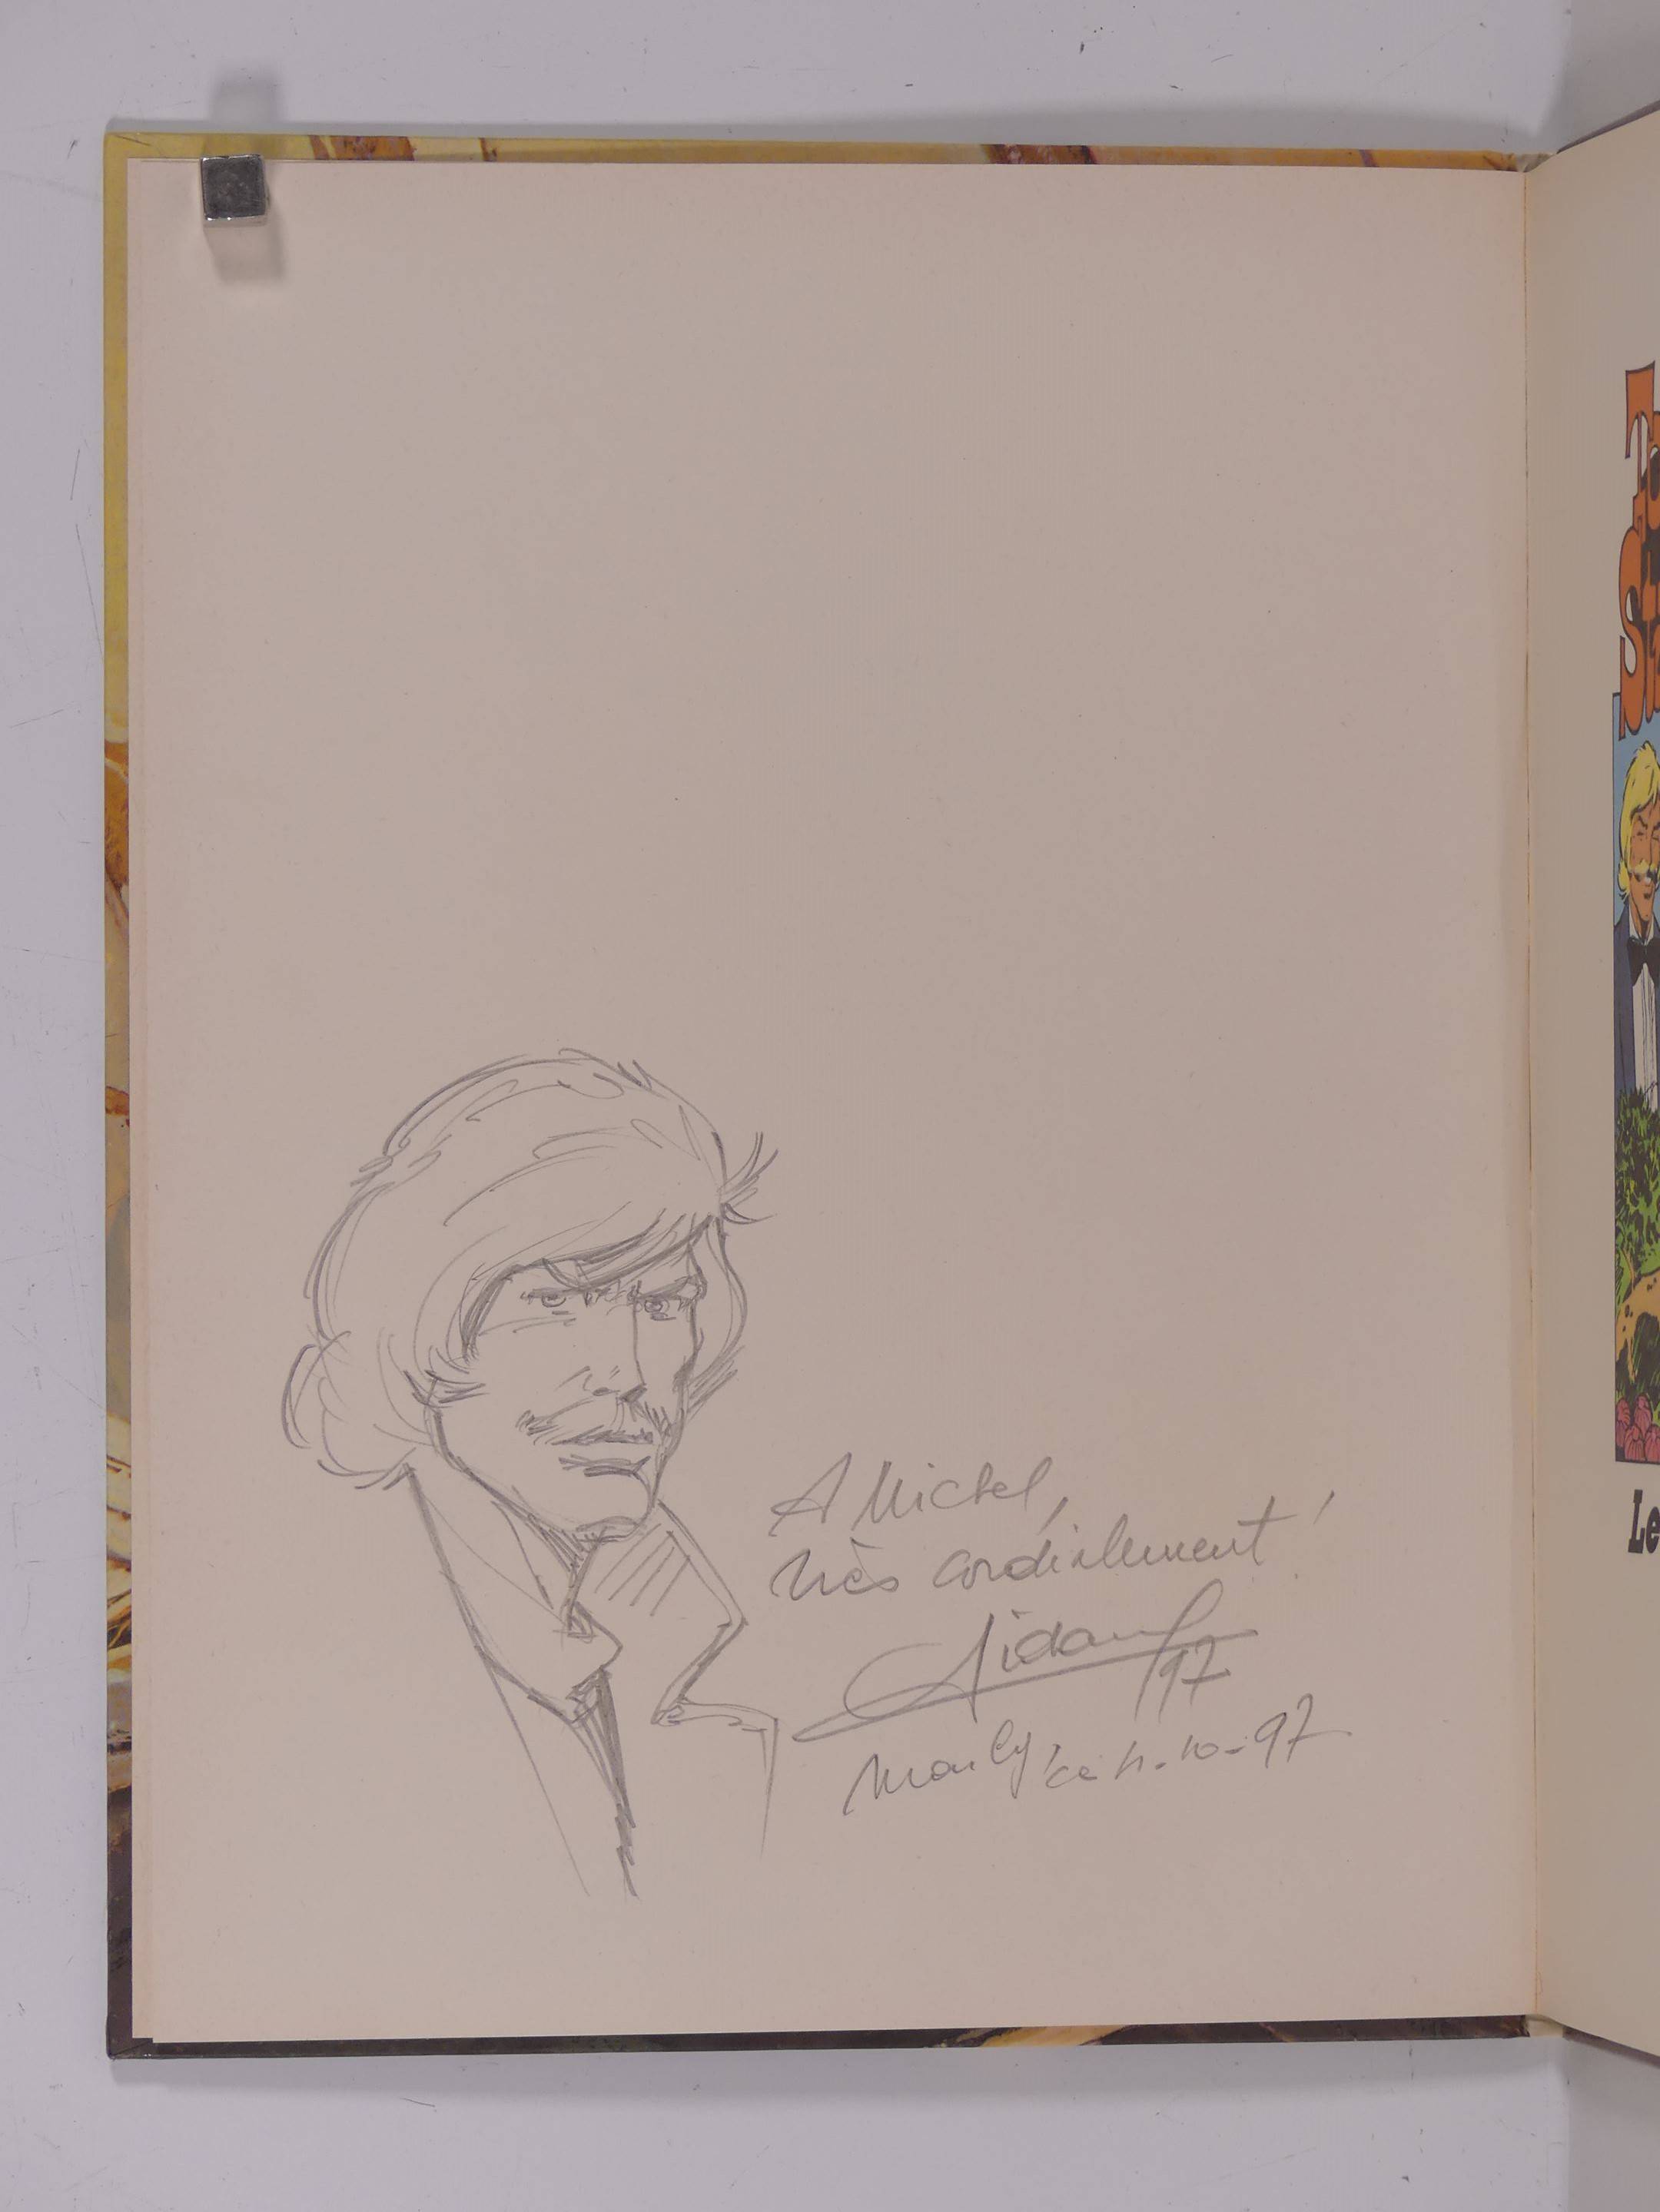 A Michel,
très cordialement !
Aidans
97
Marly, ce 11-10-97
To
St
Le